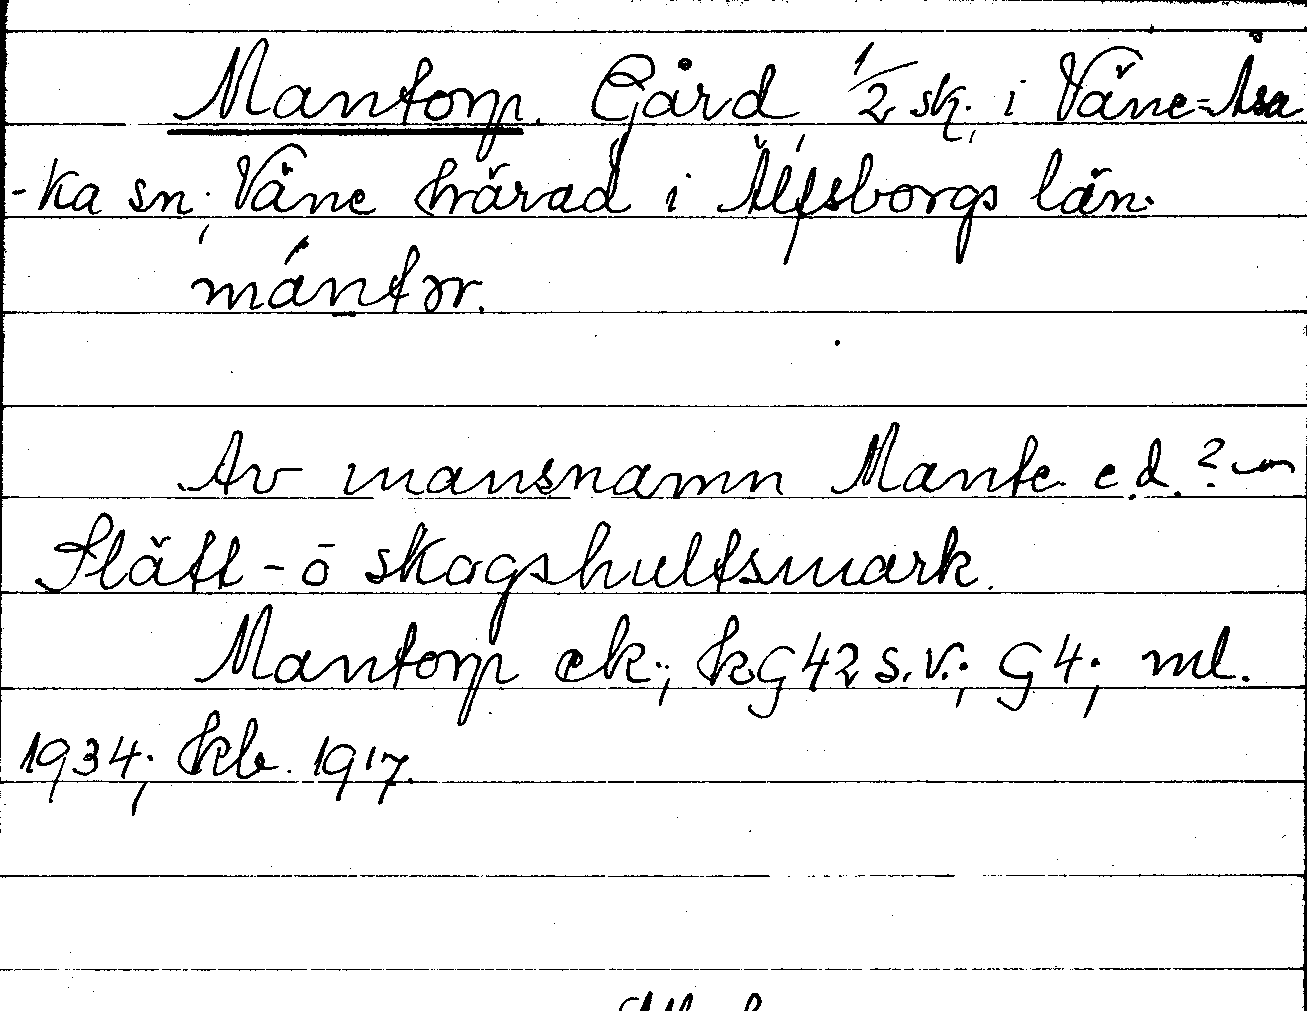 Mantorp. Gård 1/2 sk. i Väne-Åsa
-ka sn; Väne härad i Älfsborgs län.
mántɔr.
Av mansnamn Mante e.d.?
Slätt- o skogshultsmark.
Mantorp ek.; kG42 s.v.; G4; ml.
1934; kb. 1917.